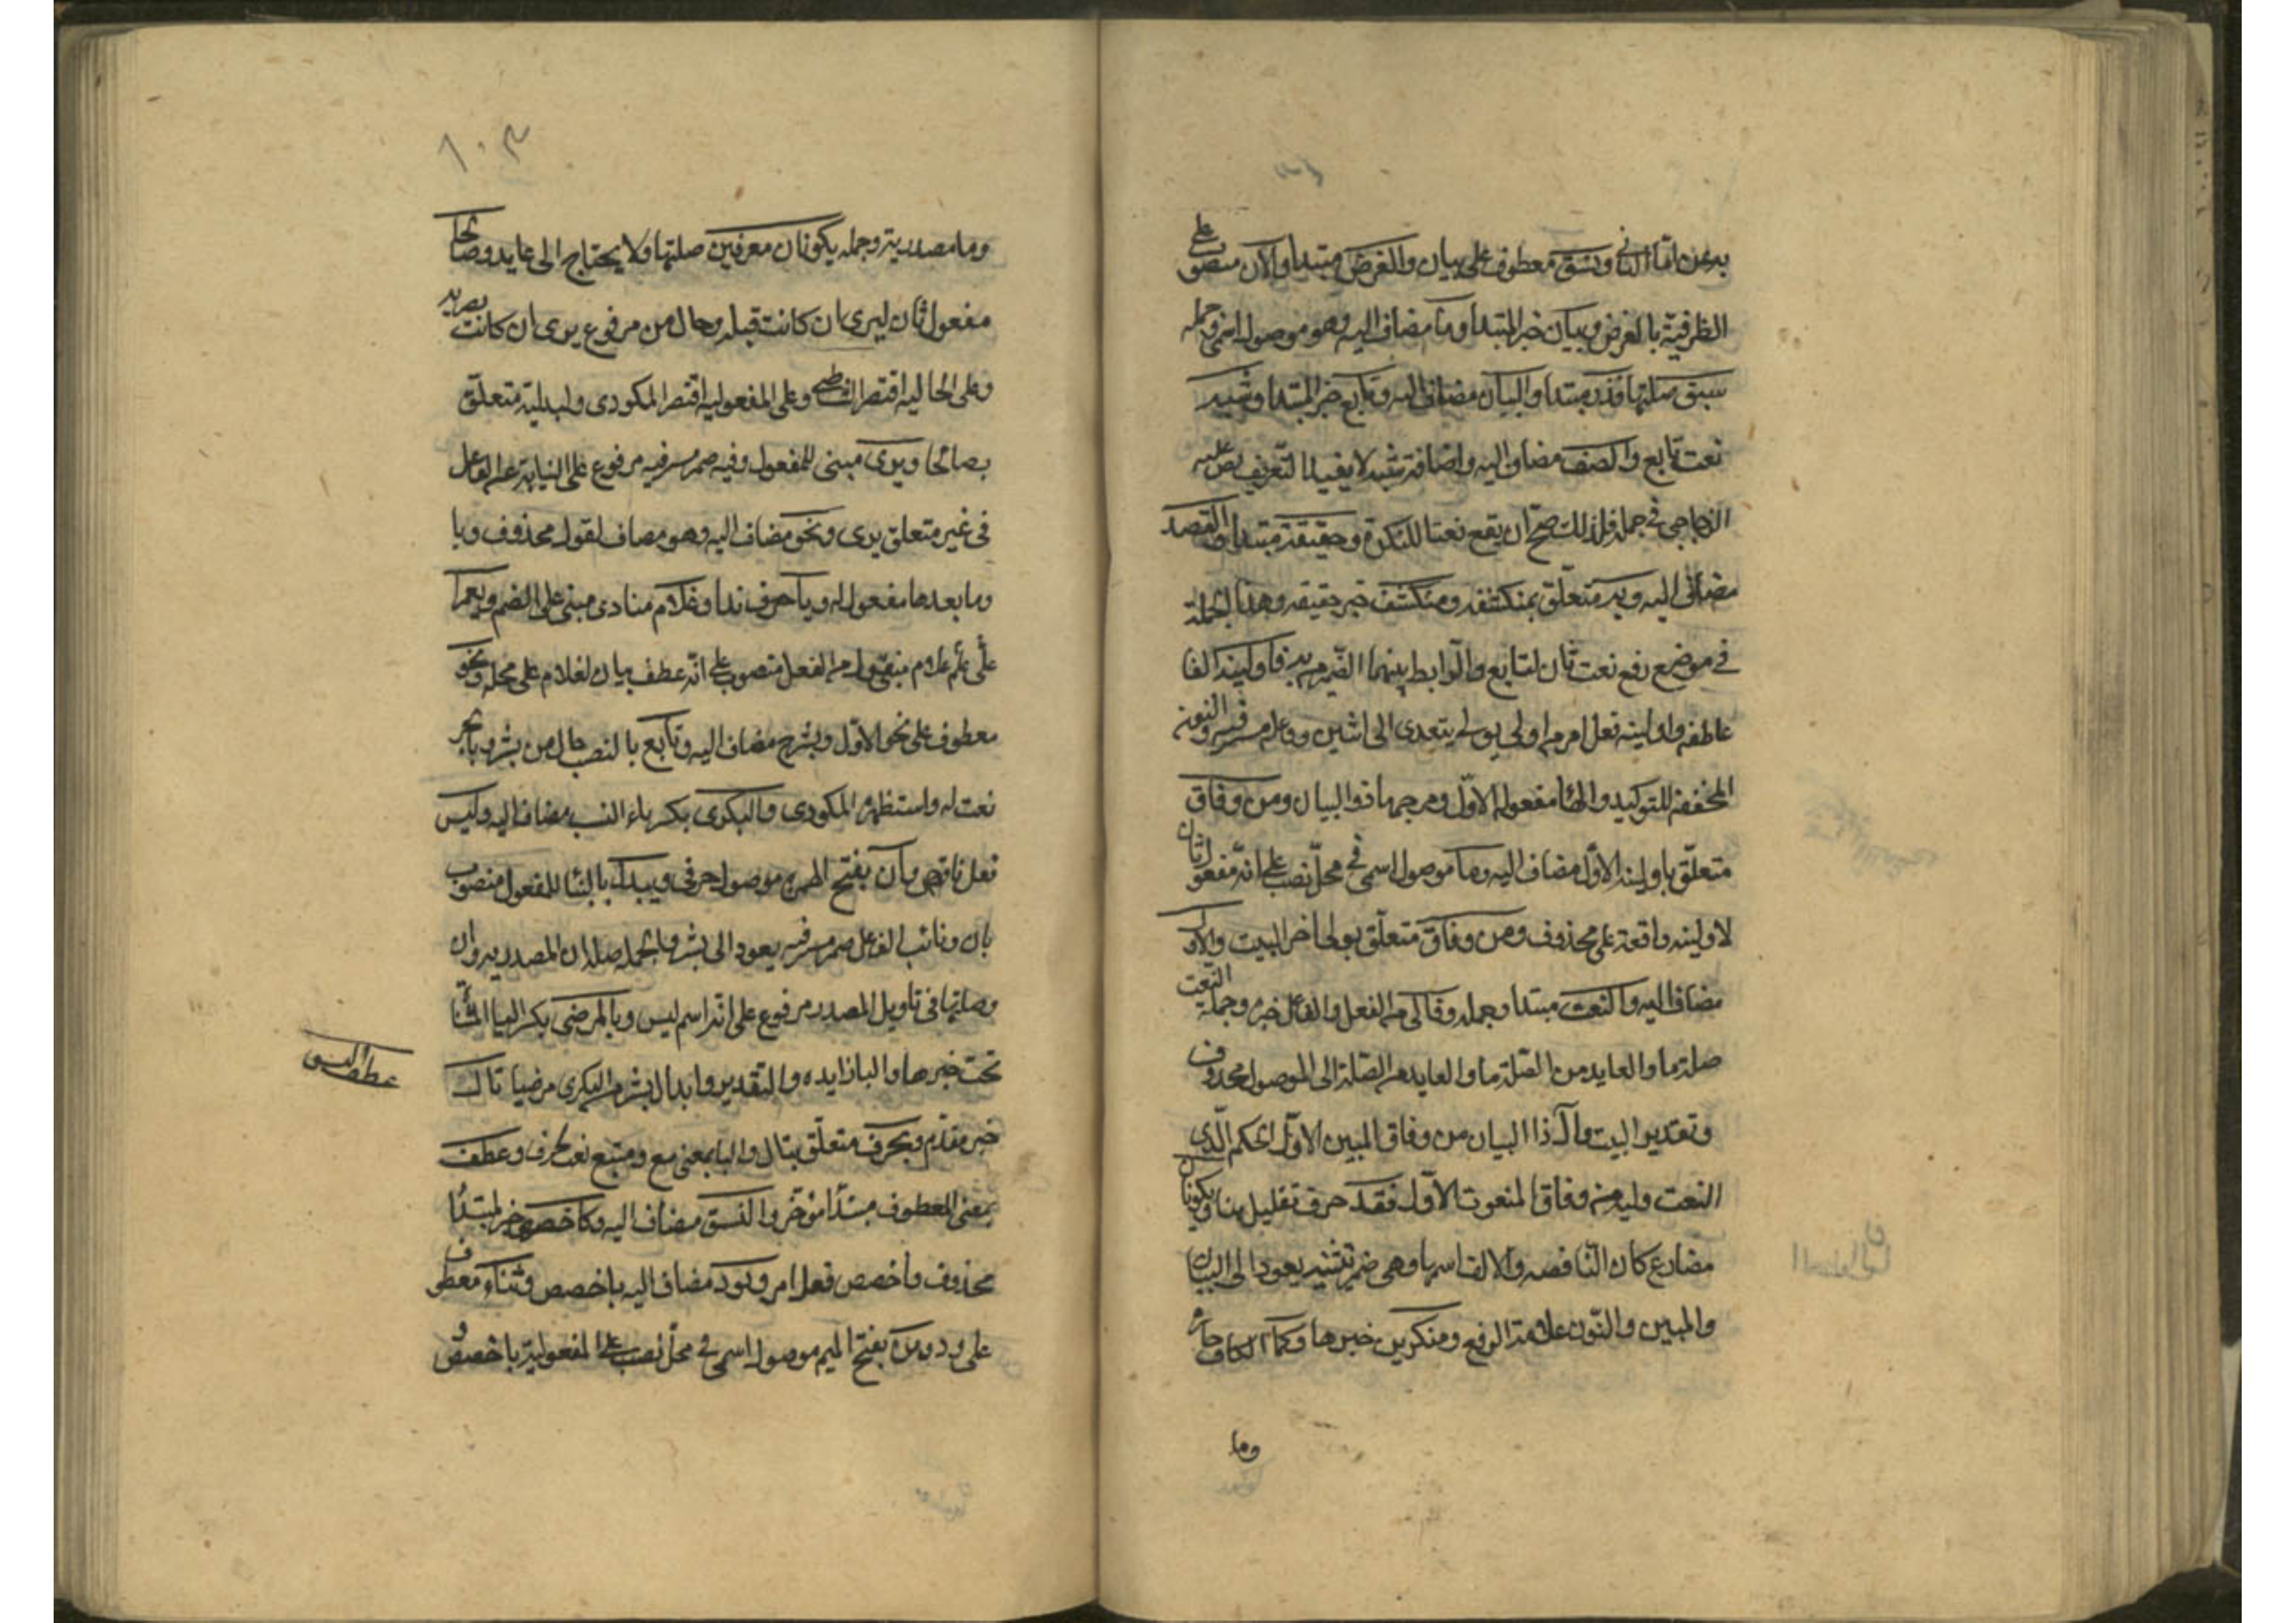 بدعن اما الثاني ونسق معطوف على بيان والغرض مبتدا والان منصوب على
الظرفية بالغرض وبيان خبر المبتدا وما مضاف اليه وهو موصول اسمى وجمله
سبق صلتها فذو مبتدا والبيان مضاف اليه وتابع خبر المبتدا وشبه
نعت تابع والصفه مضاف اليه واضافة شبه لا يفيد التعريف نص عليه
الزجاجى في جمله فلذلك صح ان يقع نعتا للنكرة وحقيقة مبتدا والقصد
مضاف اليه وبه متعلق بمنكشفه ومنكشفه خبر حقيقه وهذا الجملة
في موضع رفع نعت ثان لتابع والرابط بينهما الضمير به فاولينه الفا
عاطفه واولينه فعل امر من اولى يولى يتعدى الى اثنين وفاعله مستتر فيه والنون
المخففه للتوكيد والها مفعوله الاول ومرجعها ذو البيان ومن وفاق
متعلق باولينه الاول مضاف اليه وما موصول اسمى في محل نصب على انه مفعول ثان
لاولينه واقعة على محذوف ومن وفاق متعلق بولى اخر البيت والاول
مضاف اليه والنعت مبتدا وجمله ولى من الفعل والفاعل خبره وجملة النعت
صلة ما والعايد من الصلة ما والعايد من الصلة الى الموصول محذوف
وتقدير البيت وآل ذا البيان من وفاق المبين الاول الحكم الذى
النعت وليه من وفاق المنعوت الاول فقد حرف تقليل هنا ويكونان
مضارع كان الناقصه والالف اسمها وهى ضمير تثنيه يعود الى البيان
والمبين والنون علامة الرفع ومنكرين خبرها وكما الكاف جارة
وما
١٠٣
وما مصدرية وجمله يكونان معرفين صلتها ولا يحتاج الى عايد وصالحا
مفعول ثان ليرى ان كانت قبله وحال من مرفوع يرى ان كانت بصريه
وعلى الحاليه اقتصر الشاطبى وعلى المفعوليه اقتصر المكودى ولبدلية متعلق
بصالحا ويرى مبنى للمفعول وفيه ضمير مستتر فيه مرفوع على النيابة عن الفاعل
فى غير متعلق يرى ونحو مضاف اليه وهو مضاف لقول محذوف ويا
وما بعدها مفعول له ويا حرف ندا وغلام منادى مبنى على الضم ويعمرا
على علم غلام منقول من الفعل منصوب على انه عطف بيان لغلام على محله ونحو
معطوف على نحو الاول وبشر مضاف اليه وتابع بالنصب حال من بشر وبالجر
نعت له واستظهره المكودى والبكرى بكسر ياء النسب مضاف اليه وليس
فعل ناقص وان بفتح الهمزه موصول حرفى ويبدل بالبنا للمفعول منصوب
بان ونائب الفاعل ضمير مستتر فيه يعود الى بشر والجمله صلة ان المصدريه وان
وصلتها فى تاويل المصدر مرفوع على انه اسم ليس وبالمرضى بكسر اليا المثناة
تحت خبرها والبا زايده والتقدير وابدال بشر من البكرى مرضيا تال
عطف النسق
خبر مقدم وبحرف متعلق بتال والبا بمعنى مع ومتبع نعت لحرف وعطف
بمعنى المعطوف مبتدا مؤخر والنسق مضاف اليه وكاخصص خبر لمبتدا
محذوف واخصص فعل امر وبود مضاف اليه باخصص وثناء معطوف
على ود ومن بفتح الميم موصول اسمى في محل نصب على المفعولية باخصص و